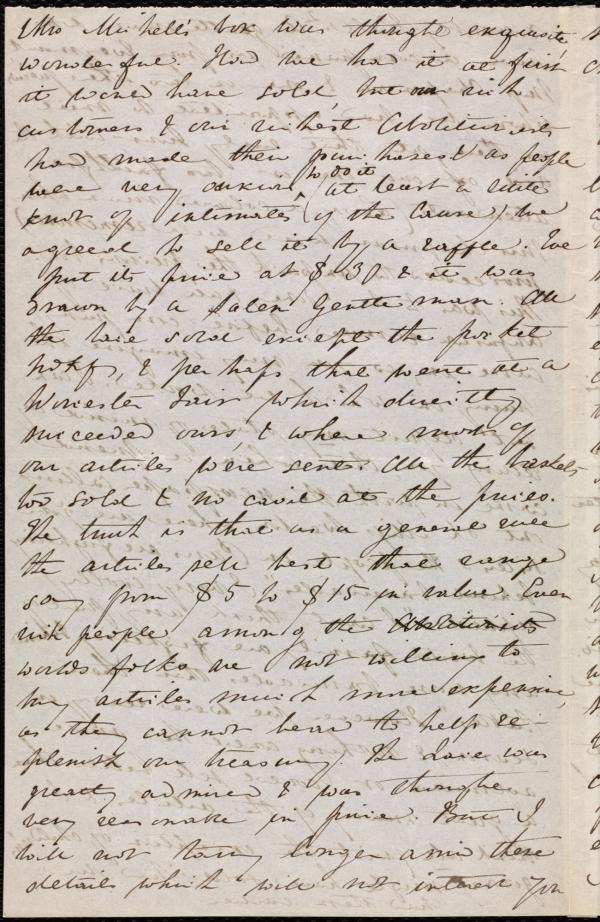 Mrs Michell's box was thought exquisite,
wonderful. Had we had it at first
it would have sold, but our rich
customers & our richest Abolitionists
had made their purchases & as people
were very anxious to do it (at least a little
knot of intimates (of the Cause) we
agreed to sell it by a raffle. We
put its price at $30 & it was
drawn by a Salem Gentleman. All
the lace sold except the pocket
hdkfs, & perhaps that were at a
Worcester Fair which directly
succeeded ours, & where most of
our articles were sent. All the baskets
too sold & no cavil at the prices.
The truth is that as a general rule
the articles sell best that range
say from $5 to $15 in value. Even
rich people among the Abolitionists
worlds folks are not willing to
buy articles much more expensive,
as they cannot bear to help re-
plenish our treasury. The Lace was
greatly admired & was thought
very reasonable in price. But I
will not tarry longer amid these
details which will not interest you